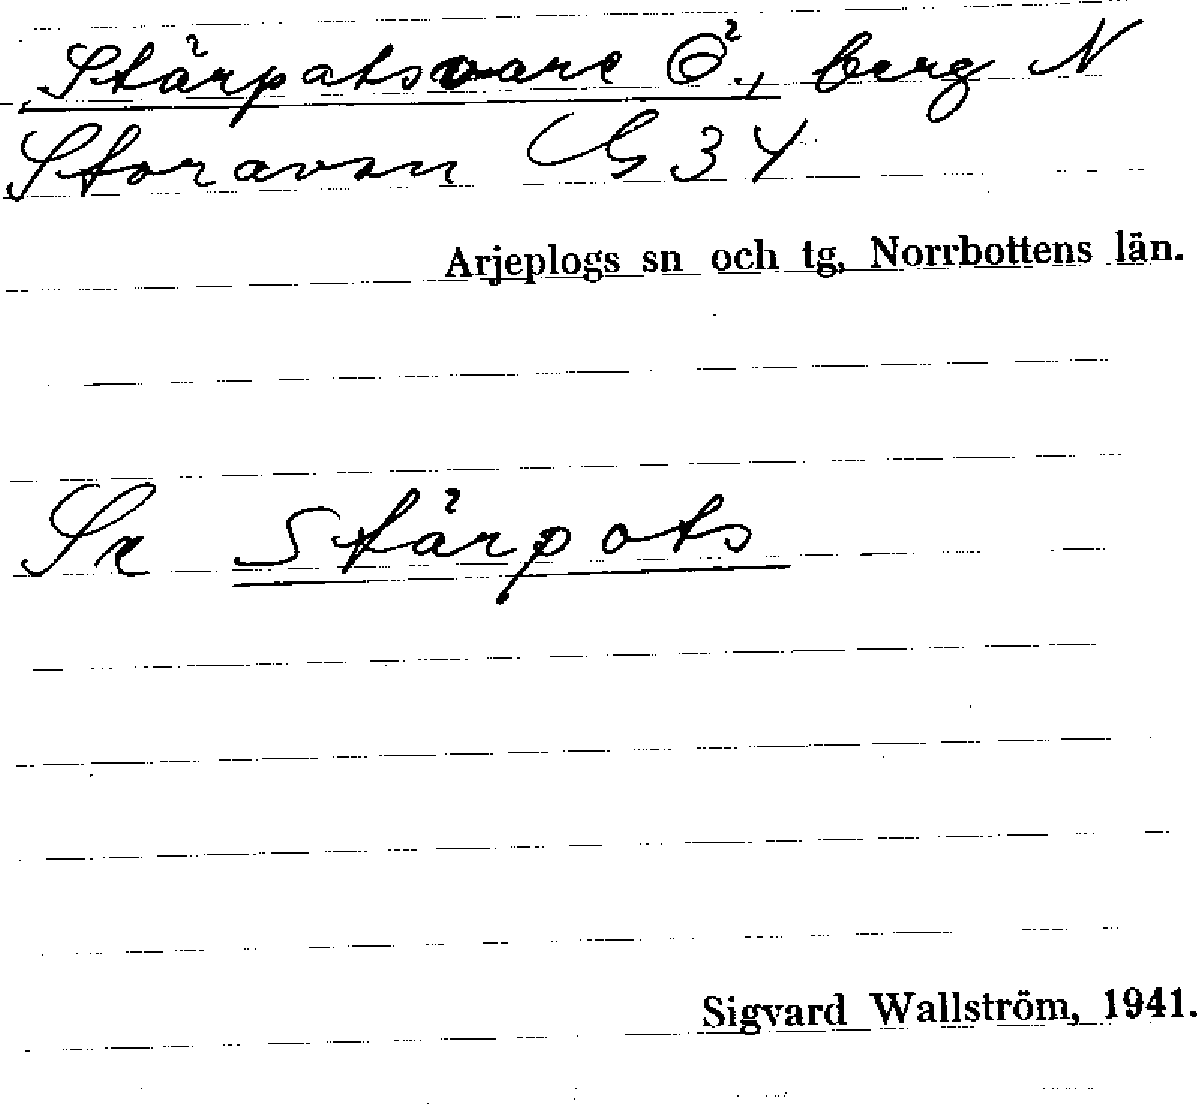 Stärpatsvare Ö., berg N
Storavan G 34
Arjeplogs sn och tg, Norrbottens län.
Se Stärpots
Sigvard Wallström, 1941.